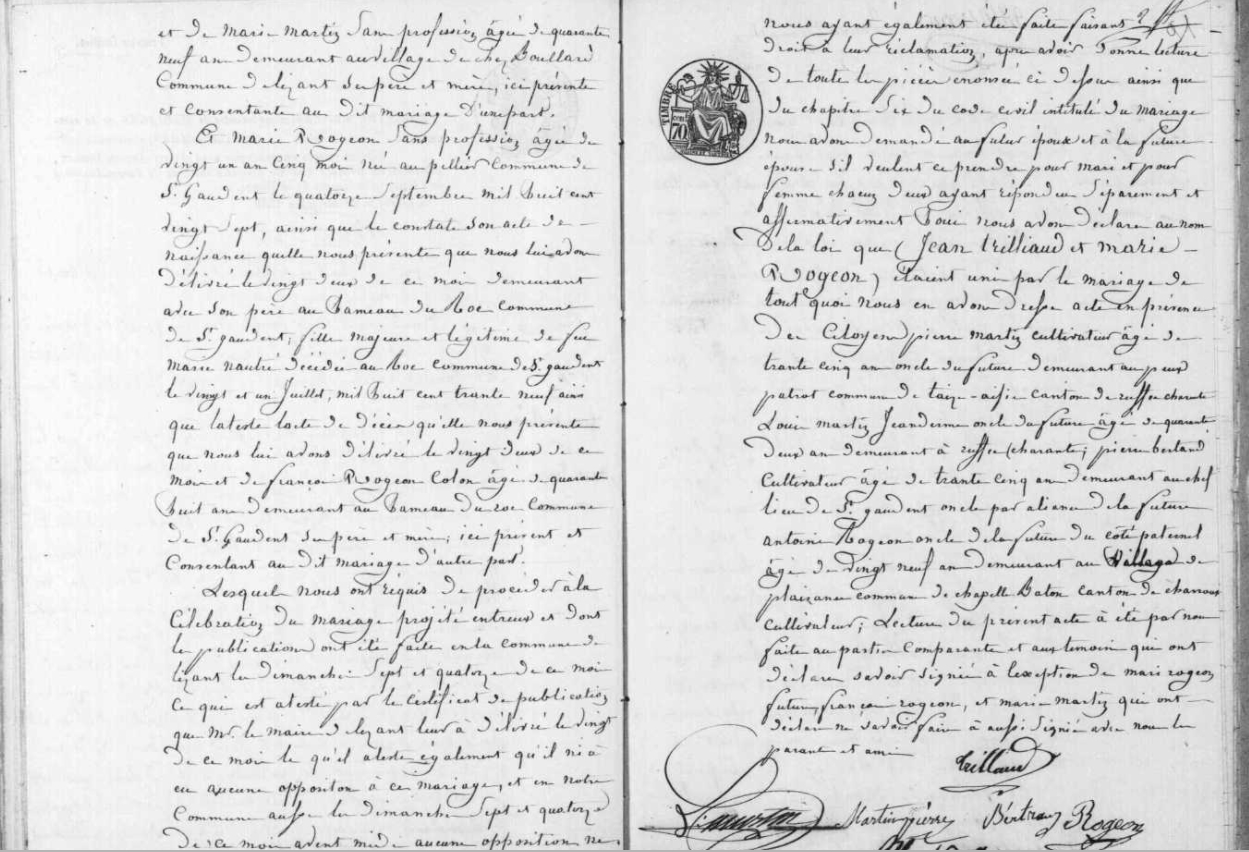 et de marie martin sans profession âgée de quarante
neuf an demeurant au village de chez Boullard
Commune de lezant ses père et mère, ici présents
et Consentants au dit mariage d'une part.
Et Marie Rogeon sans profession âgée de
vingt un an Cinq moi né au pellier Commune de
St Gaudent le quatorze Septembre mil huit cent
vingt Sept, ainsi que le constate Son acte de
naissance quelle nous présente que nous lui avon
délivré le vingt deux de ce moi demeurant
avec Son père au hameau du Roc commune
de St gaudent, fille majeure et légitime de feu
marie nautré décédée au Roc commune de St gaudent
le vingt et un Juillet, mil huit cent trante neuf ainsi
que lateste lacte de décès qu'elle nous présente
que nous lui avons délivré le vingt deux de ce
moi et de françoi Rogeon Colon âgé de quarante
huit ans demeurant au hameau du roc Commune
de St Gaudent Ses père et mère, ici présent et
Consentant au dit mariage d'autre part.
Lesquel nous ont réquis de procéder à la
Célébration du mariage projeté entreux et dont
les publication ont été faite en la commune de
lezant les dimanche Sept et quatorze de ce moi
Ce que est atesté par le Certificat de publication
que Mr le maire de lezant leur à délivré le vingt
de ce moi le qu'el ateste également qu'il ni à
eu aucune oppositon à ce mariage, et en notre
Commune ausse les dimanche Sept et quatorze
de ce moi aucune opposition ne
nous ayant également été faite faisant
droit a leur réclamation, apre avoir donné lecture
de toute les pièces enoncée ci dessu ainsi que
du chapitre Six du code civil intitulé du mariage
nou avon demandé au futur époux et à la future
épouse s'il veulent ce prendre pour mari et pour
femme chacun deux ayant répondu Séparement et
affirmativement Oui nous avon déclaré au nom
De la loi que (Jean trilliaud et marie
Rogeon) étaient uni par le mariage de
tout quoi nous en avon dressé acte en présence
des Citoyen pierre martin cultivateur âgé de
trante cinq an oncle du future demeurant au peux
patrot commune de taizé-aisie canton de ruffec charente
Loui martin oncle du future âgé de quarante
deux an demeurant à ruffec (charante, pierre bertand
Cultivateur âgé de trante cinq an demeurant au chef
lieu de St gaudent oncle par aliance de la future
antoine Rogeon oncle de la future du côté paternel
âgé de vingt neuf an demeurant au Village de
plaizance commune de chapelle Baton canton de charroux
Cultivateur; Lecture du présent acte à été par nou
faite au partie Comparante et aux temoin qui ont
déclaré savoir signée à lexception de mari rogeon
future, françoi rogeon, et marie martin qui ont
déclaré ne savoir faire à aussi Signée avec nou les
parants et amis
trilland
Martin pierre Bértran Rogeon